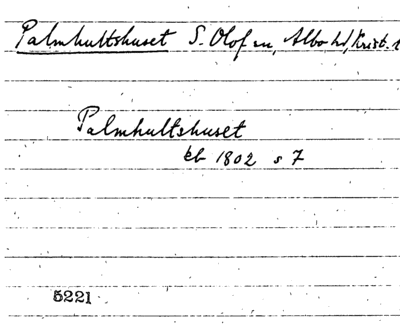 Palmhultshuset S. Olof sn, Albo hd, Krist. l
Palmhultshuset
kb 1802 s 7
5221